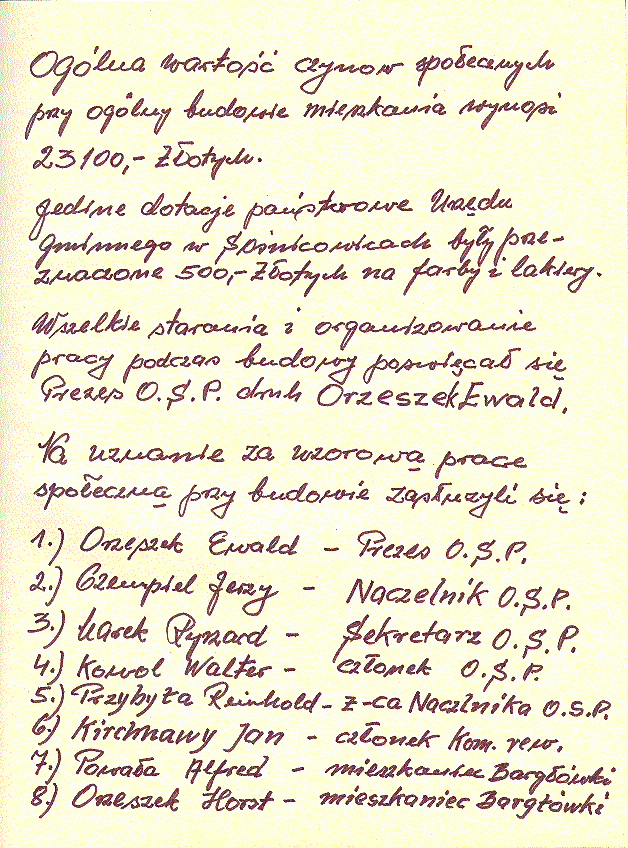 Ogólna wartość czynow społecznych
przy ogólny budowie mieszkania wynosi
23100,- Złotych.
Jedine dotacje państwowe Urzędu
Gminnego w Sośnicowicach były prze-
znaczone 500,- Złotych na farby i lakiery.
Wszelkie starania i organizowanie
pracy podczas budowy poswięcał się
Prezes O.S.P. druh Orzeszek Ewald.
Na uznanie za wzorową prace
społeczną przy budowie zasłużyli się:
1.) Orzeszek Ewald - Prezes O.S.P.
2.) Czempiel Jerzy - Naczelnik O.S.P.
3.) Marek Ryszard - Sekretarz O.S.P.
4.) Kowol Walter - członek O.S.P.
5.) Przybyła Reinhold - z-ca Naczlnika O.S.P.
6.) Kirchnawy Jan - członek Kom. rew.
7.) Powała Alfred - mieszkaniec Bargłówki
8.) Orzeszek Horst - mieszkaniec Bargłówki